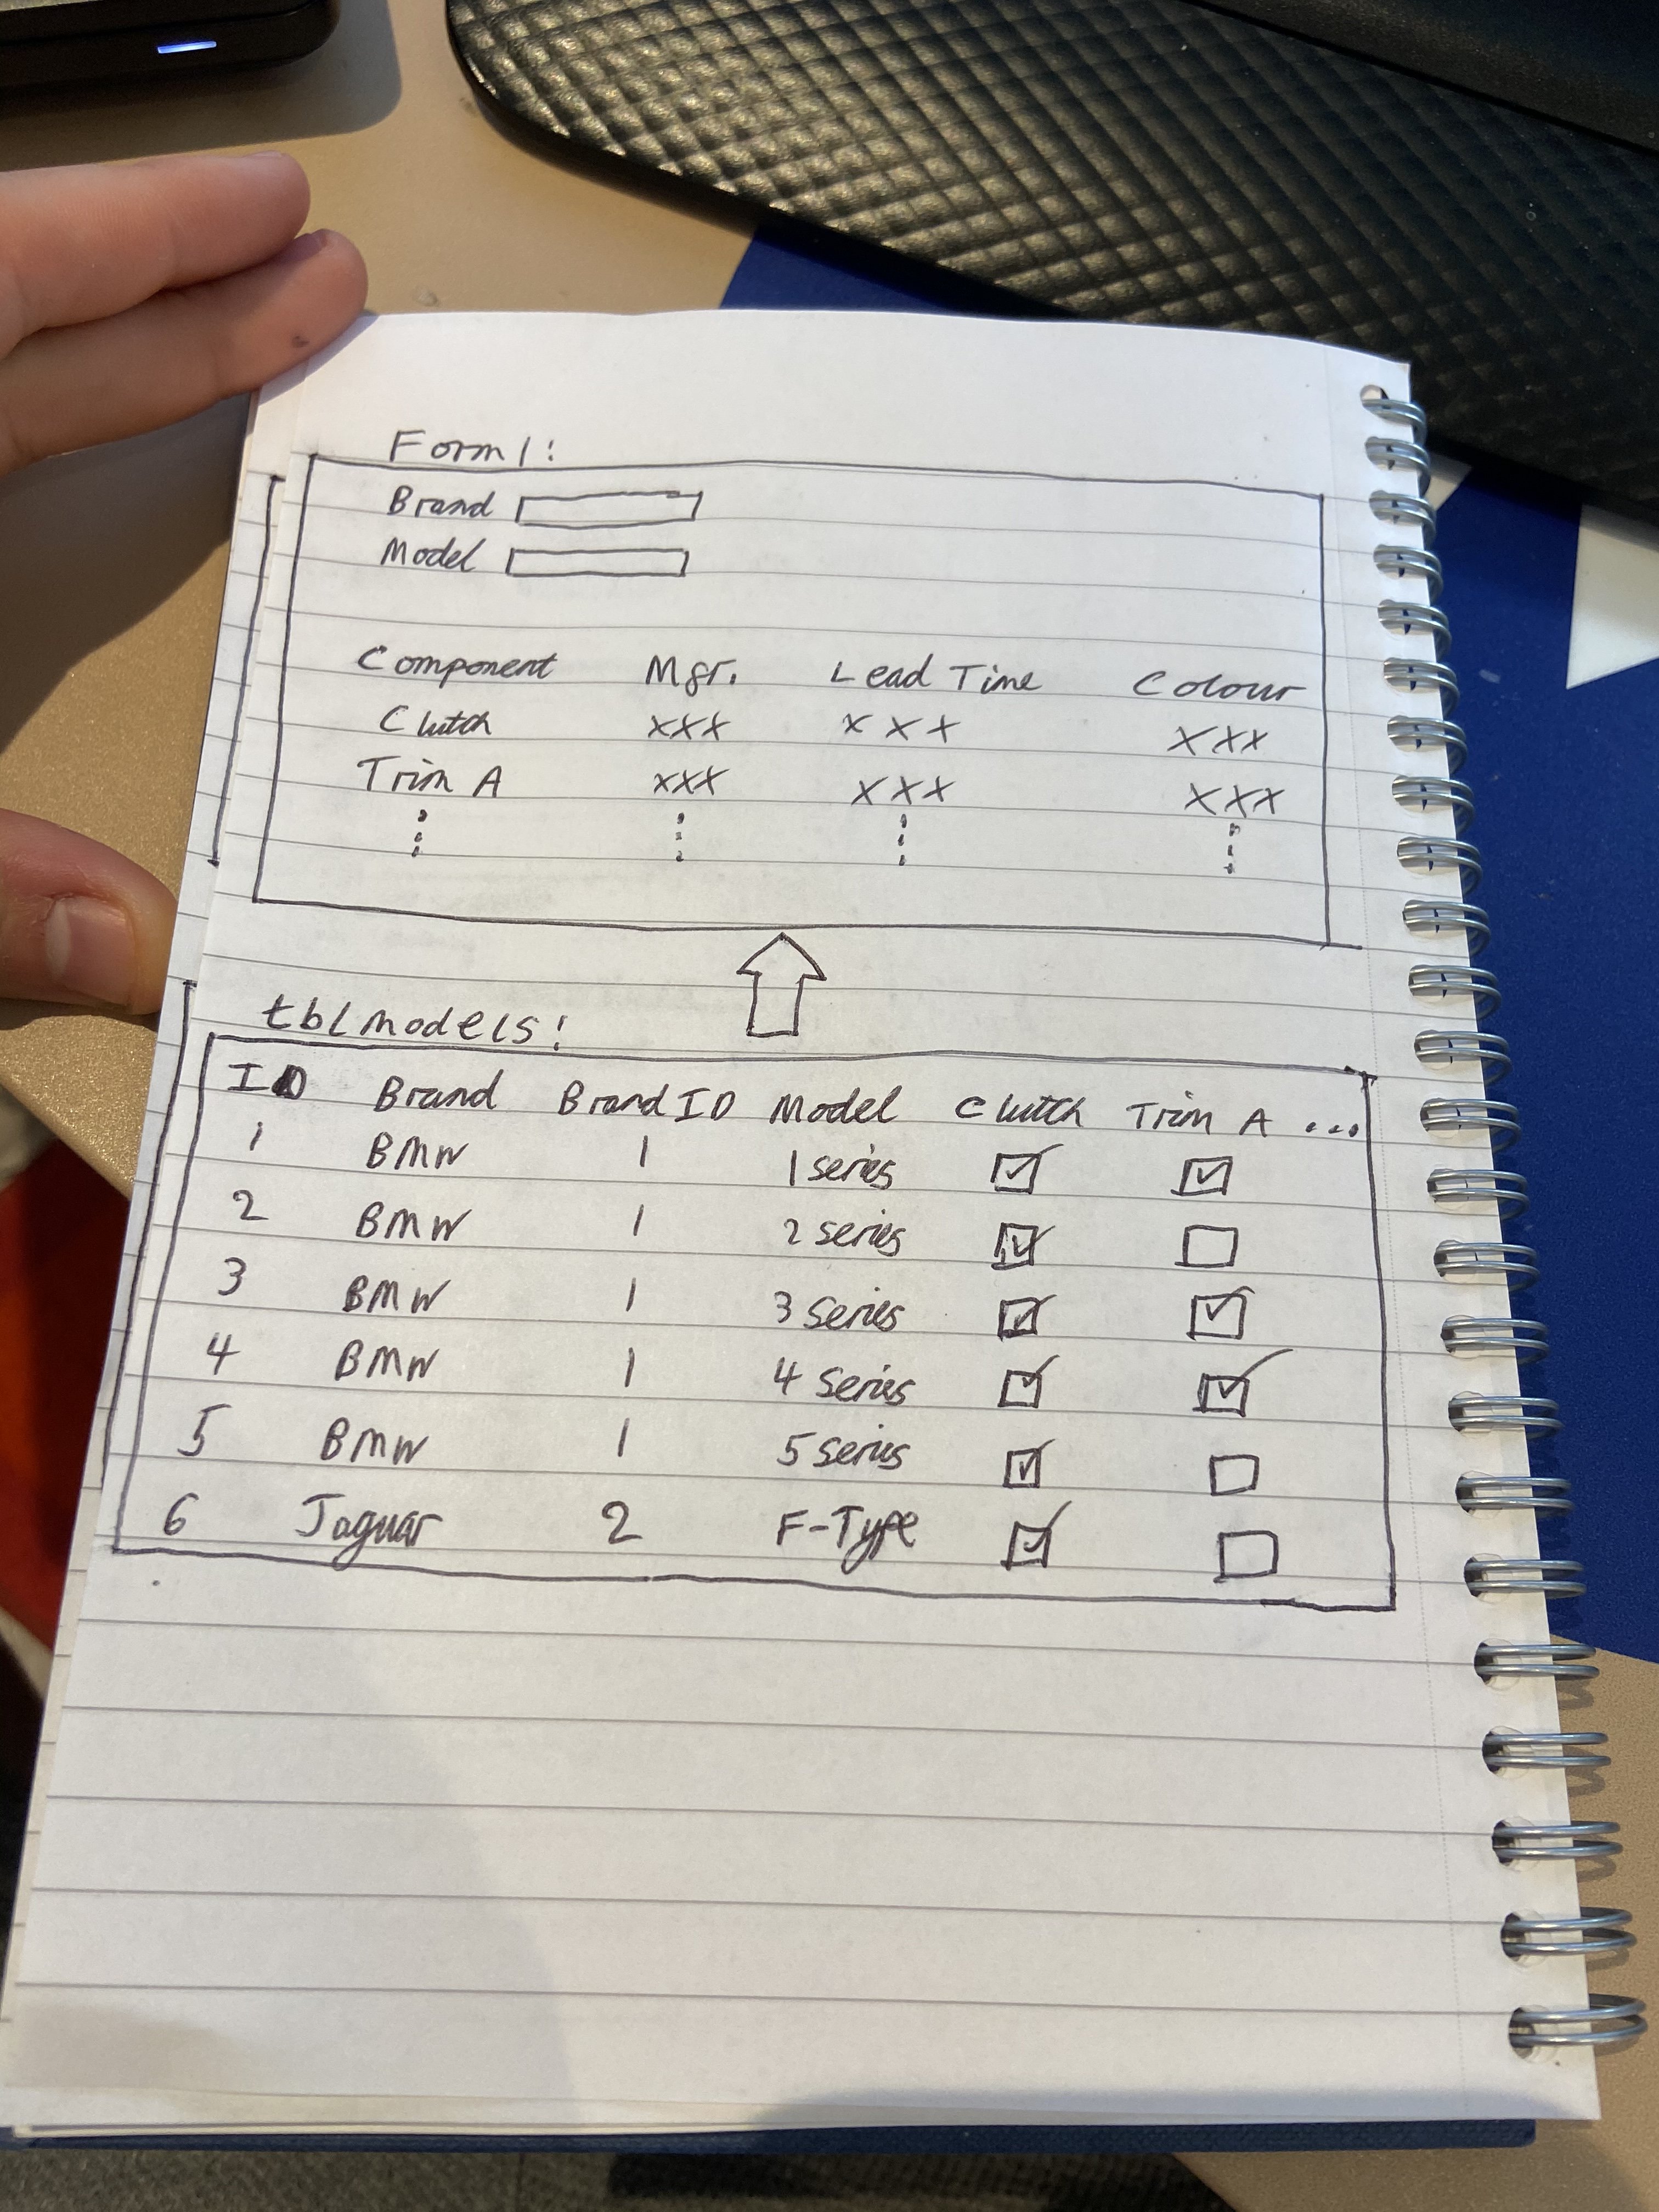 Form 1:
Brand
Model
Component Mgr. Lead Time Colour
Clutch xxx xxx xxx
Trim A xxx xxx xxx
tblmodels:
ID Brand Brand ID Model Clutch Trim A ...
1 BMW 1 1 series ☑ ☑
2 BMW 1 2 series ☑ ☐
3 BMW 1 3 series ☑ ☑
4 BMW 1 4 series ☑ ☑
5 BMW 1 5 series ☑ ☐
6 Jaguar 2 F-Type ☑ ☐